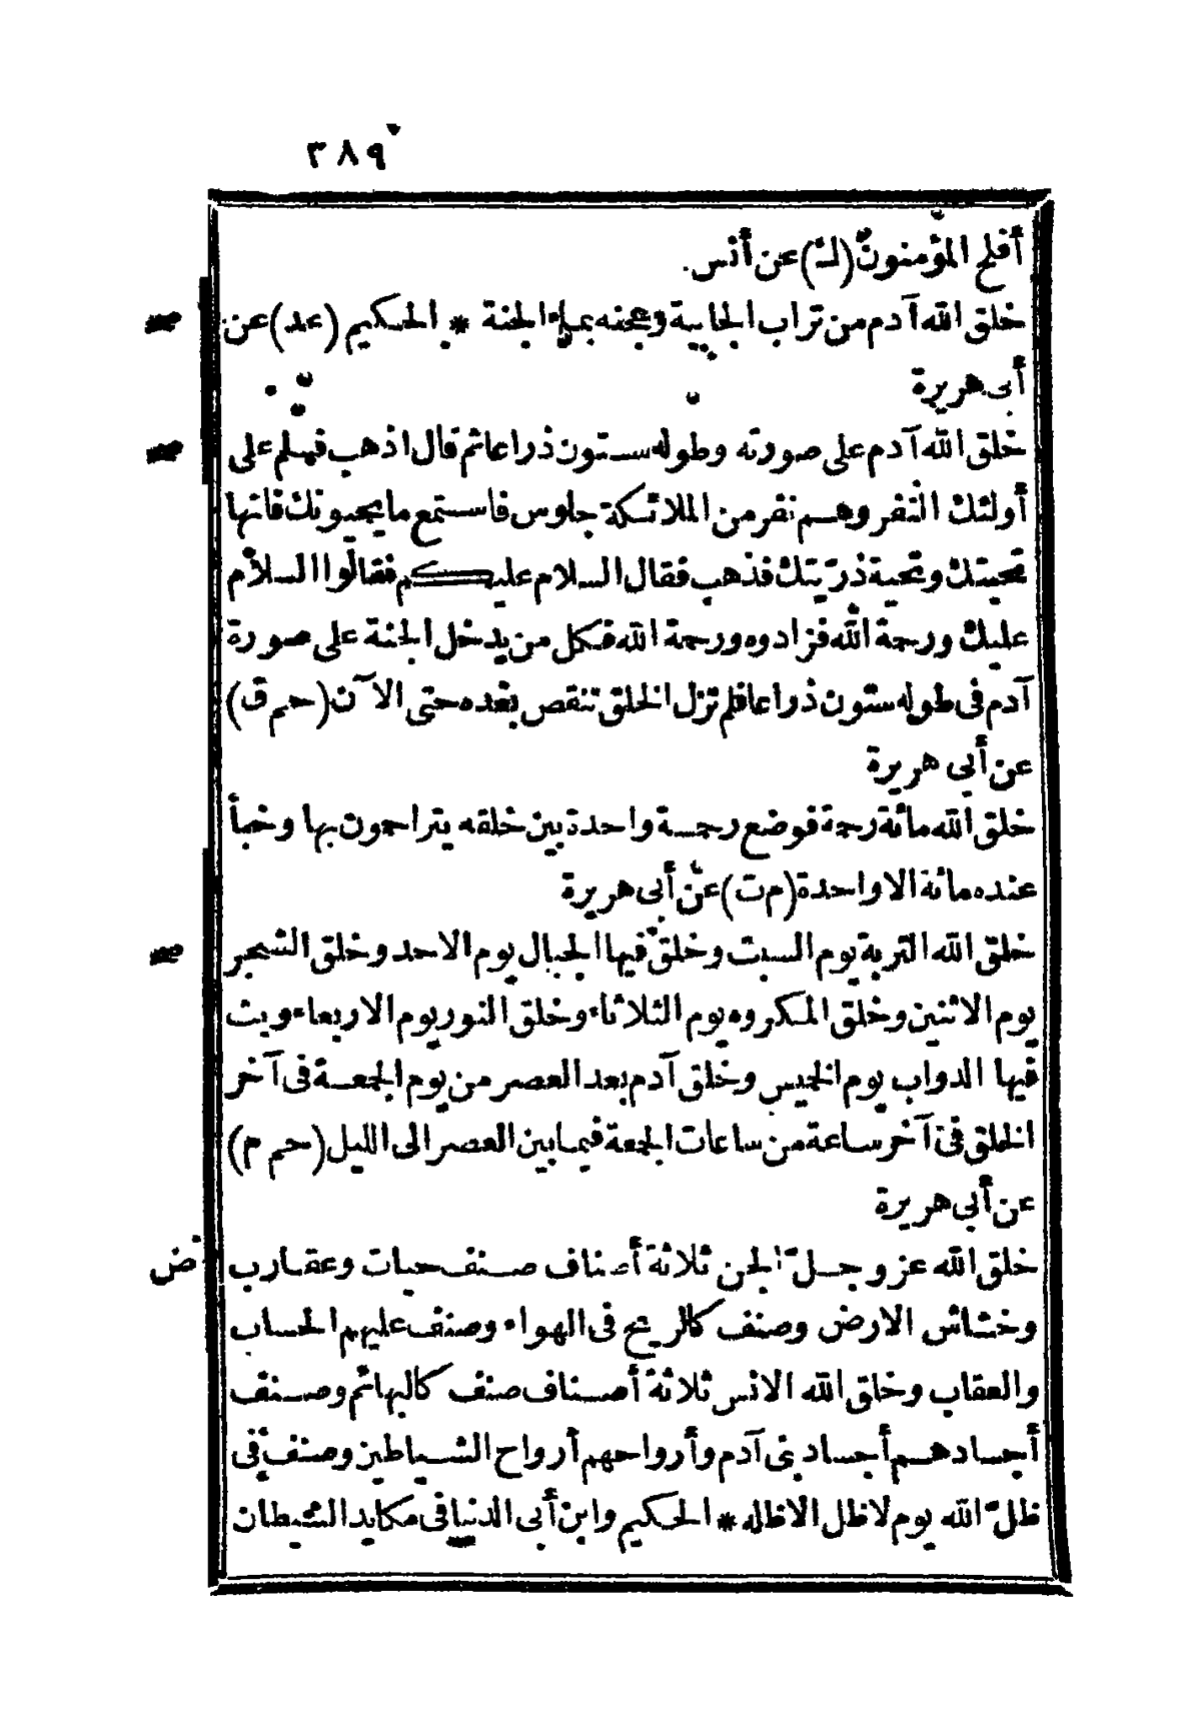 ٣٨٩
أفلح المؤمنون (ك) عن أنس.
خلق الله آدم من تراب الجابية وعجنه بماء الجنة * الحكيم (عد) عن
صح
أبى هريرة
خلق الله آدم على صورته وطوله ستون ذراعا ثم قال اذهب فسلم على
صح
أولئك النفر وهم نفر من الملائكة جلوس فاستمع ما يحيونك فانها
تحيتك وتحية ذريتك فذهب فقال السلام عليكم فقالوا السلام
عليك ورحمة الله فزادوه ورحمة الله فكل من يدخل الجنة على صورة
آدم فى طوله ستون ذراعا فلم تزل الخلق تنقص بعده حتى الآن (حم ق)
عن أبى هريرة
خلق الله مائة رحمة فوضع رحمة واحدة بين خلقه يتراحمون بها وخبأ
عنده مائة الا واحدة (م ت) عن أبى هريرة
خلق الله التربة يوم السبت وخلق فيها الجبال يوم الاحد وخلق الشجر
صح
يوم الاثنين وخلق المكروه يوم الثلاثاء وخلق النور يوم الاربعاء وبث
فيها الدواب يوم الخميس وخلق آدم بعد العصر من يوم الجمعة فى آخر
الخلق فى آخر ساعة من ساعات الجمعة فيما بين العصر الى الليل (حم م)
عن أبى هريرة
خلق الله عز وجلّ الجن ثلاثة أصناف صنف حيات وعقارب
ض
وخشاش الارض وصنف كالريح فى الهواء وصنف عليهم الحساب
والعقاب وخلق الله الانس ثلاثة أصناف صنف كالبهائم وصنف
أجسادهم أجساد بنى آدم وأرواحهم أرواح الشياطين وصنف فى
ظلّ الله يوم لا ظل الا ظله * الحكيم وابن أبى الدنيا فى مكايد الشيطان